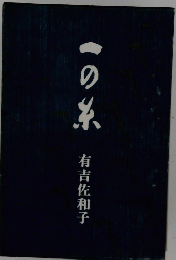 一の糸
有吉佐和子